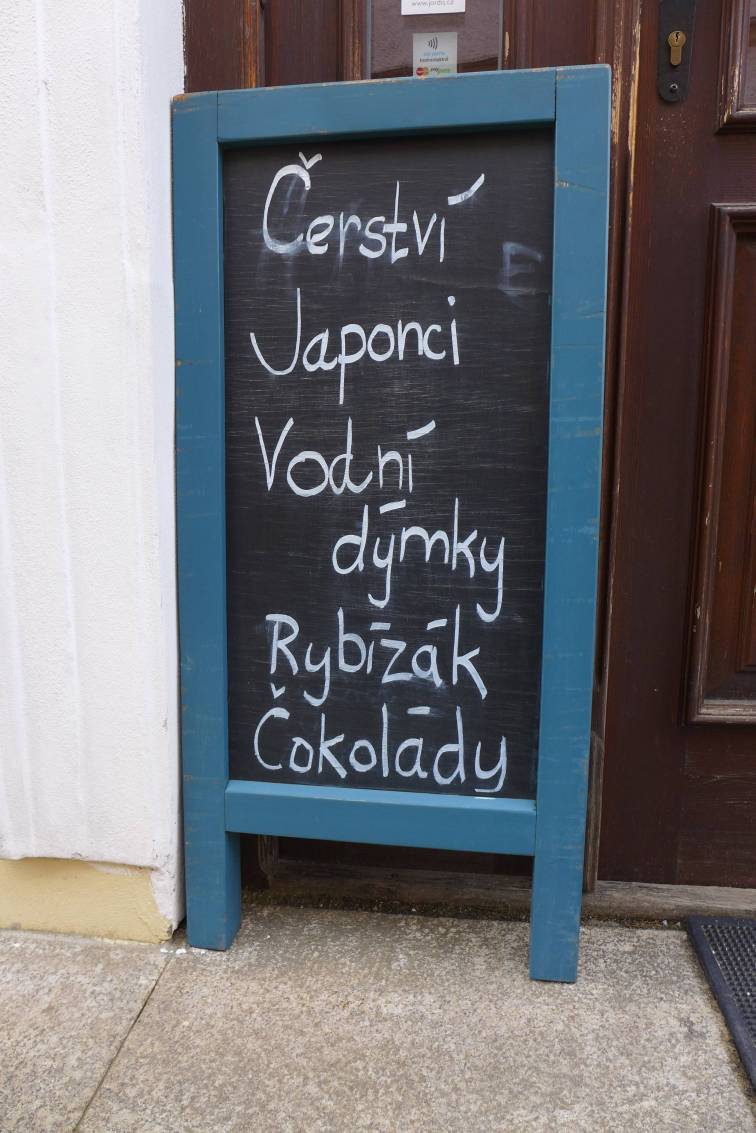 www.jordis.cz
Čerství
Japonci
Vodní
dýmky
Rybízák
Čokolády